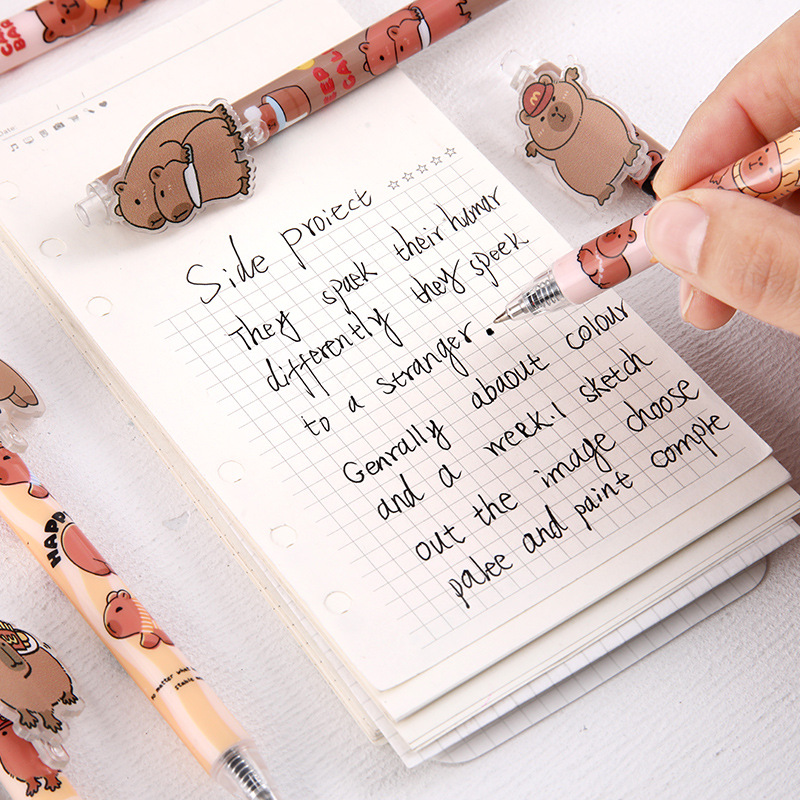 Date:
Side proiect
They spaek their humar
differently they speek
to a stranger.
Genrally abaout colour
and a week.I sketch
out the image choose
palee and paint comple
HAPP
stable